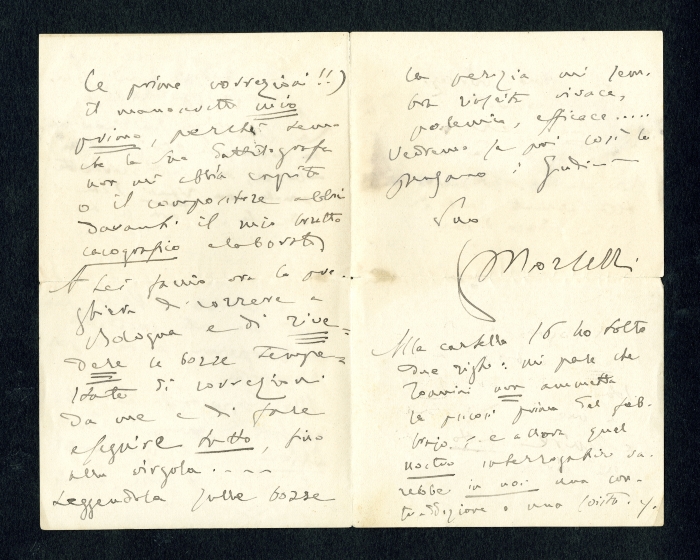 le prime correzioni!!)
il manoscritto mio
primo, perchè temo
che la Sua dattilografa
non mi abbia capito
o il compositore abbia
davanti il mio brutto
cacografico elaborato)
A Lei faccio ora la pre-
ghiera di correre a
Bologna e di rive-
dere le bozze tempe-
state di correzioni
da me e di fare
eseguire tutto, fino
alla virgola....
Leggendola sulle bozze
la perizia mi sem-
bra riuscita vivace,
polemica, efficace.....
Vedremo se poi così la
pensano i Giudici
Suo
Morselli
Alla cartella 16 ho tolto
due righe: mi pare che
non ammetta
la psicosi prima del feb-
braio: e allora quel
nostro interrogativo sa-
rebbe in noi una con-
traddizione o una